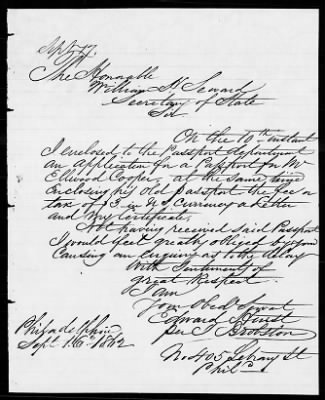 The Honorable
William H Seward
Secretary of State
Sir
On the 10th instant
I enclosed to the Passport Department
an application for a Passport for Mr
Ellwood Cooper, at the same time
Enclosing his old Passport the fee or
tax of $3 in U S currency a letter
and my Certificate.
Not having received said Passport
I would feel greatly obliged by your
Causing an enquiry as to the delay
With Sentiments of
great Respect
I am
Your Obedt Servant
Edward
per Brobston
Philadelphia
Sept 16th 1862
No 405 Library St
Phila